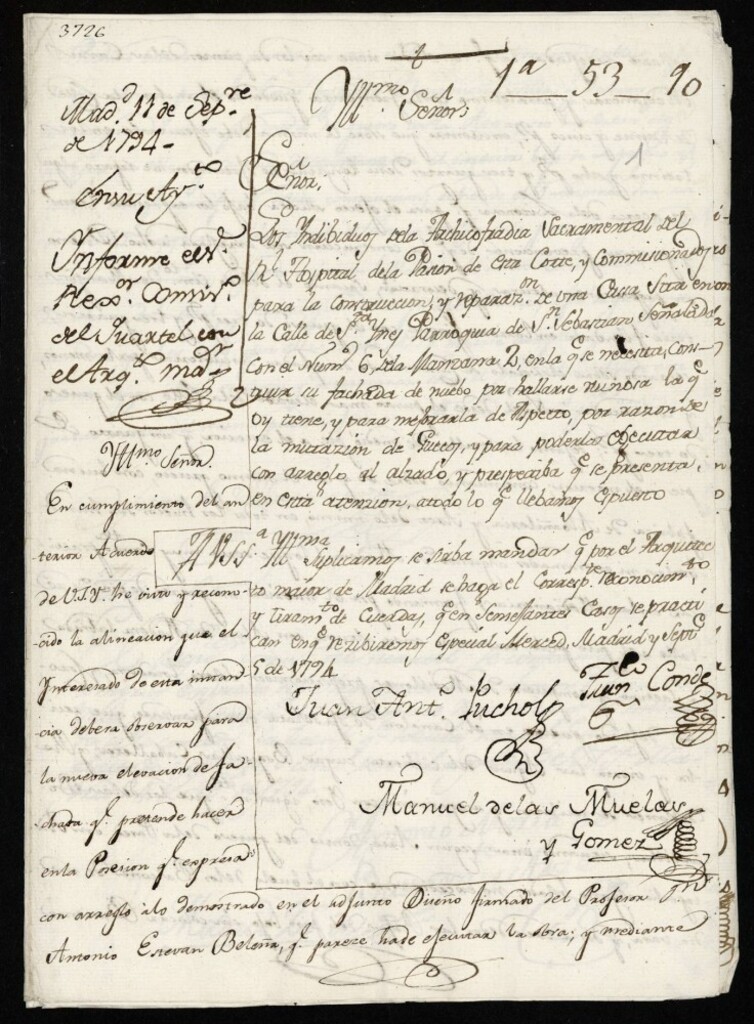 3726
1ª 53 90
1
Yllmo Señor
Madd 11 de Sepre
de 1794
En su Aytto
Informe el Sr
Rexor Comiso
del Quartel con
el Arqto mayr
Señor.
Los Yndibiduos dela Archicofradia Sacramental del
Rl Hospital dela Pasion de esta Corte, y Commisionados
para la construccion, y reparazon de una Cassa sita en
la Calle de Sta Ynes Parroquia de Sn Sebastian Señalada
con el Numo 6 dela Manzana 2, en la qe se necesita, cons-
truir su fachada de nuebo por hallarse ruinosa la qe
oy tiene, y para mejorarla de Aspecto, por razon de
la mutazion de Guecos, y para poderlos egecutar
con arreglo al alzado, y prespectiba qe se presenta,
en esta atenzion, atodo lo qe llebamos espuesto
A V.S. Yllma Suplicamos se sirba mandar qe por el Arquitec
to maior de Madrid se haga el Correspte reconocimto
y tiramto de Cuerdas, qe en semejantes Casos se practi
can en qe rezibiremos especial Merced. Madrid y Sepre
5 de 1794
Juan Anto Puchol
Franco Conde
Manuel de las Muelas
y Gomez
Yllmo Señor
En cumplimiento del an
terior Acuerdo
de V.S.Y. he visto y recono-
cido la alineacion que el
Ynteresado de esta instan
cia debera observar para
la nueva elevacion de fa
chada qe pretende hacer
en la Posesion qe expresa
con arreglo alo demostrado en el adjunto Diseño firmado del Profesor Dn
Antonio Estevan Beleña, qe pareze ha de ejecutar la obra; y mediante